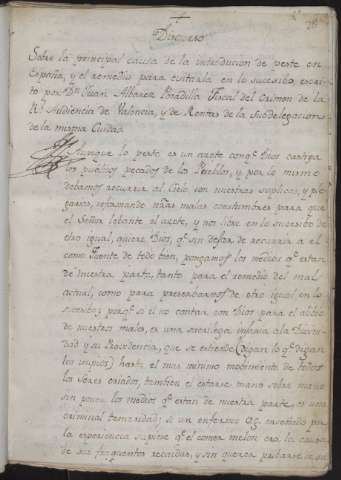 Discurso
Sobre la principal causa de la introduccion de peste en
España, y el remedio para evitarla en lo sucesivo, escri-
to por Dn. Juan Alvarez Posadilla Fiscal del Crimen de la
Rl. Audiencia de Valencia, y de Rentas de la Subdelegacion
de la misma Ciudad.
Aunque la peste es un azote con q.e Dios castiga
los pueblos pecados de los Pueblos, y por lo mismo
debamos recurrir al Cielo con nuestras suplicas, y ple-
garias, reformando nras malas costumbres para que
el Señor lebante el azote, y nos libre en lo sucesibo de
otro igual, quiere Dios, q.e sin dejar de recurrir a el
como fuente de todo bien, pongamos los medios q.e estan
de nuestra parte, tanto para el remedio del mal
actual, como para preserbarnos de otro igual en lo
sucesibo; porq.e si el no contar con Dios para el alibio
de nuestros males, es una sacrilega injuria a la Divini-
dad y su Providencia, que se estiende (digan lo q.e digan
los impios) hasta el mas minimo mobimiento de todos
los seres criados, tambien el estarse mano sobre mano
sin poner los medios q.e estan de nuestra parte, es una
criminal temeridad; si un enfermo q.e enseñado por
la experiencia supiese q.e el comer melon era la causa
de sus frequentes recaidas, y sin querer pribarse de su